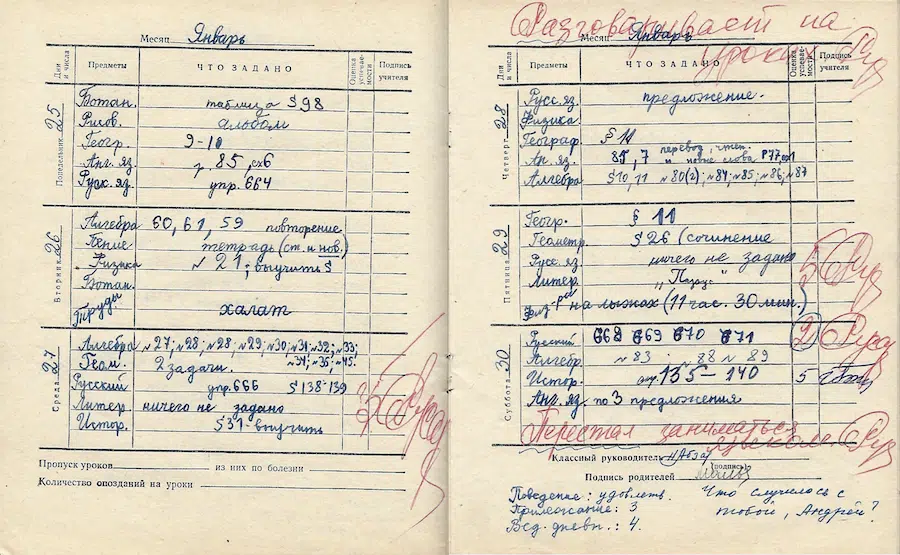 Месяц Январь
Дни и числа Предметы ЧТО ЗАДАНО Оценка успеваемости Подпись учителя
Понедельник 25
Ботан. таблица §98
Рисов. альбом
Геогр. 9-10
Анг. яз. 85, ex6
Русск. яз. упр. 664
Вторник 26
Алгебра 60, 61, 59 повторение
Пение тетрадь (ст. и нов.)
Физика N 21; выучить §
Ботан.
Труды халат
Среда 27
Алгебра N27; N28; N28; N29; N30; N31; N32; N33;
Геом. 2 задачи. N34; N35; N45.
Русский упр. 666 §138-139
Литер. ничего не задано
Истор. §31 выучить
Пропуск уроков из них по болезни
Количество опозданий на уроки
Разговаривает на уроках
Месяц Январь
Дни и числа Предметы ЧТО ЗАДАНО Оценка успеваемости Подпись учителя
Четверг 28
Русс. яз. предложение.
Физика.
Географ §11
Ан. яз. 85, 7 перевод, чтен. и новые слова P77, ex1
Алгебра §10, 11 N80(2); N84; N85; N86; N87
Пятница 29
Геогр. § 11
Геометр. § 26 (сочинение
Русс. яз. ничего не задано
Литер. "Парус" 5
Физ-ра на лыжах (11 час. 30 мин.)
Суббота 30
Русский 668 669 670 671 2
Алгебр. N 83 88 N 89
Истор. 135 - 140 5
Анг. яз. по 3 предложения
Перестал заниматься в школе.
Классный руководитель
(подпись)
Подпись родителей
Поведение: удовлеть. Что случилось с
Прилежание: 3 тобой, Андрей?
Вед. дневн.: 4.